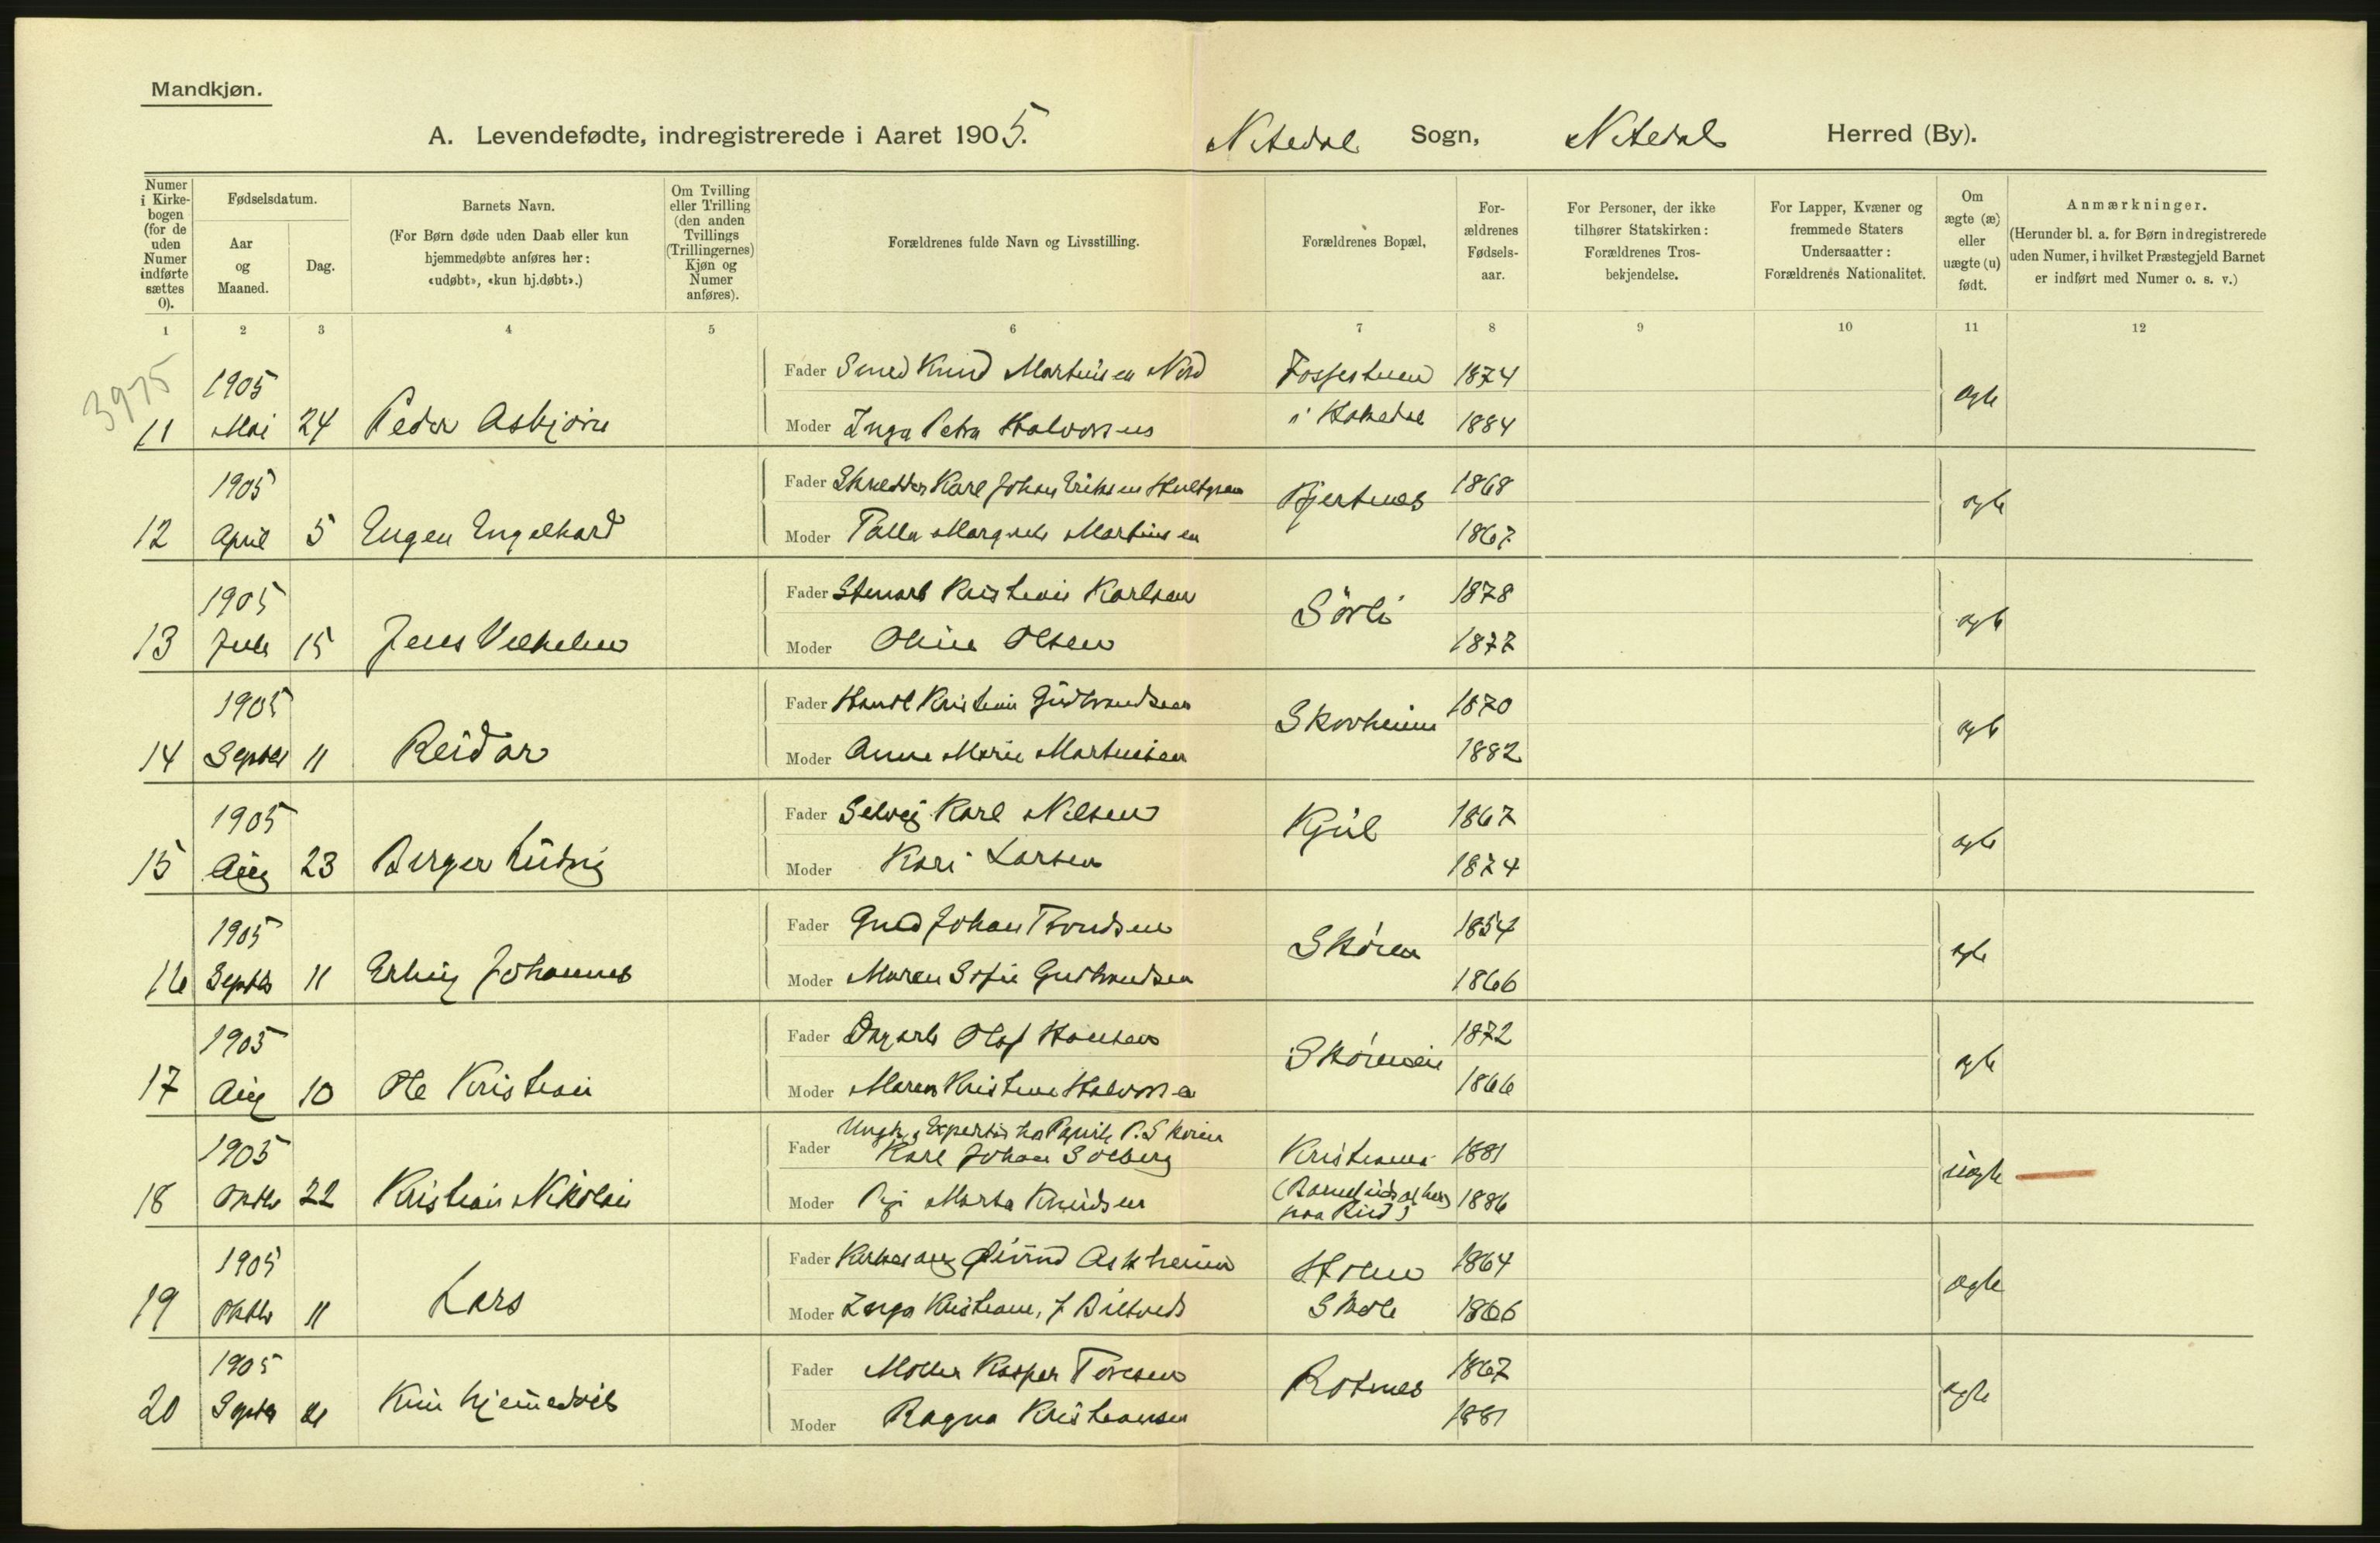 Mandkjøn.
A. Levendefødte, indregistrerede i Aaret 1905. Nitedal Sogn, Nitedal Herred (By).
Numer i Kirke-bogen (for de uden Numer indførte sættes 0).
Fødselsdatum.
Aar og Maaned.
Dag.
Barnets Navn.
(For Børn døde uden Daab eller kun hjemmedøbte anføres her: «udøbt», «kun hj.døbt».)
Om Tvilling eller Trilling (den anden Tvillings (Trillingernes) Kjøn og Numer anføres).
Forældrenes fulde Navn og Livsstilling.
Forældrenes Bopæl,
For-ældrenes Fødsels-aar.
For Personer, der ikke tilhører Statskirken: Forældrenes Tros-bekjendelse.
For Lapper, Kvæner og fremmede Staters Undersaatter: Forældrenes Nationalitet.
Om ægte (æ) eller uægte (u) født.
Anmærkninger.
(Herunder bl. a. for Børn indregistrerede uden Numer, i hvilket Præstegjeld Barnet er indført med Numer o. s. v.)
1 2 3 4 5 6 7 8 9 10 11 12
3975
1905 Fader Smed Knud Martinsen Nord Fossestuen 1874
11 Mai 24 Peder Asbjørn Moder Inga Petra Halvorsen i Hakedal 1884 ægte
1905 Fader Skrædder Karl Johan Eriksen Hultgren Bjertnes 1868
12 April 5 Eugen Engelhard Moder Margrete Martinsen 1867 ægte
1905 Fader Kristian Karlsen Sørli 1878
13 Juli 15 Jens Vilhelm Moder Oline Olsen 1877 ægte
1905 Fader Kristian Gudbrandsen Skovheim 1870
14 Septbr 11 Reidar Moder Anne Marie Martinsen 1882 ægte
1905 Fader Selvej Karl Nilsen Kjul 1867
15 Aug 23 Birger Ludvig Moder Kari Larsen 1874 ægte
1905 Fader Johan Trondsen Skøien 1854
16 Septbr 11 Erling Johannes Moder Maren Sofie Gudbrandsen 1866 ægte
1905 Fader Dagarb Olaf Hansen 1872
17 Aug 10 Ole Kristian Moder Maren Kristine Halvorsen 1866 ægte
Ungk, P. Skøien
1905 Fader Karl Johan Solberg Kristiania 1881
18 Oktbr 22 Kristian Nikolai Moder Pige Marta Knudsen 1886 uægte
paa Rud)
1905 Fader Kirkesang Øivind Askheim 1864
19 Oktbr 11 Lars Moder Inga Kristiane, f Skole 1866 ægte
1905 Fader Møller Kasper Toresen Rotnes 1867
20 Septbr Kun hjemmedøbt Moder Ragna Kristiansen 1881 ægte